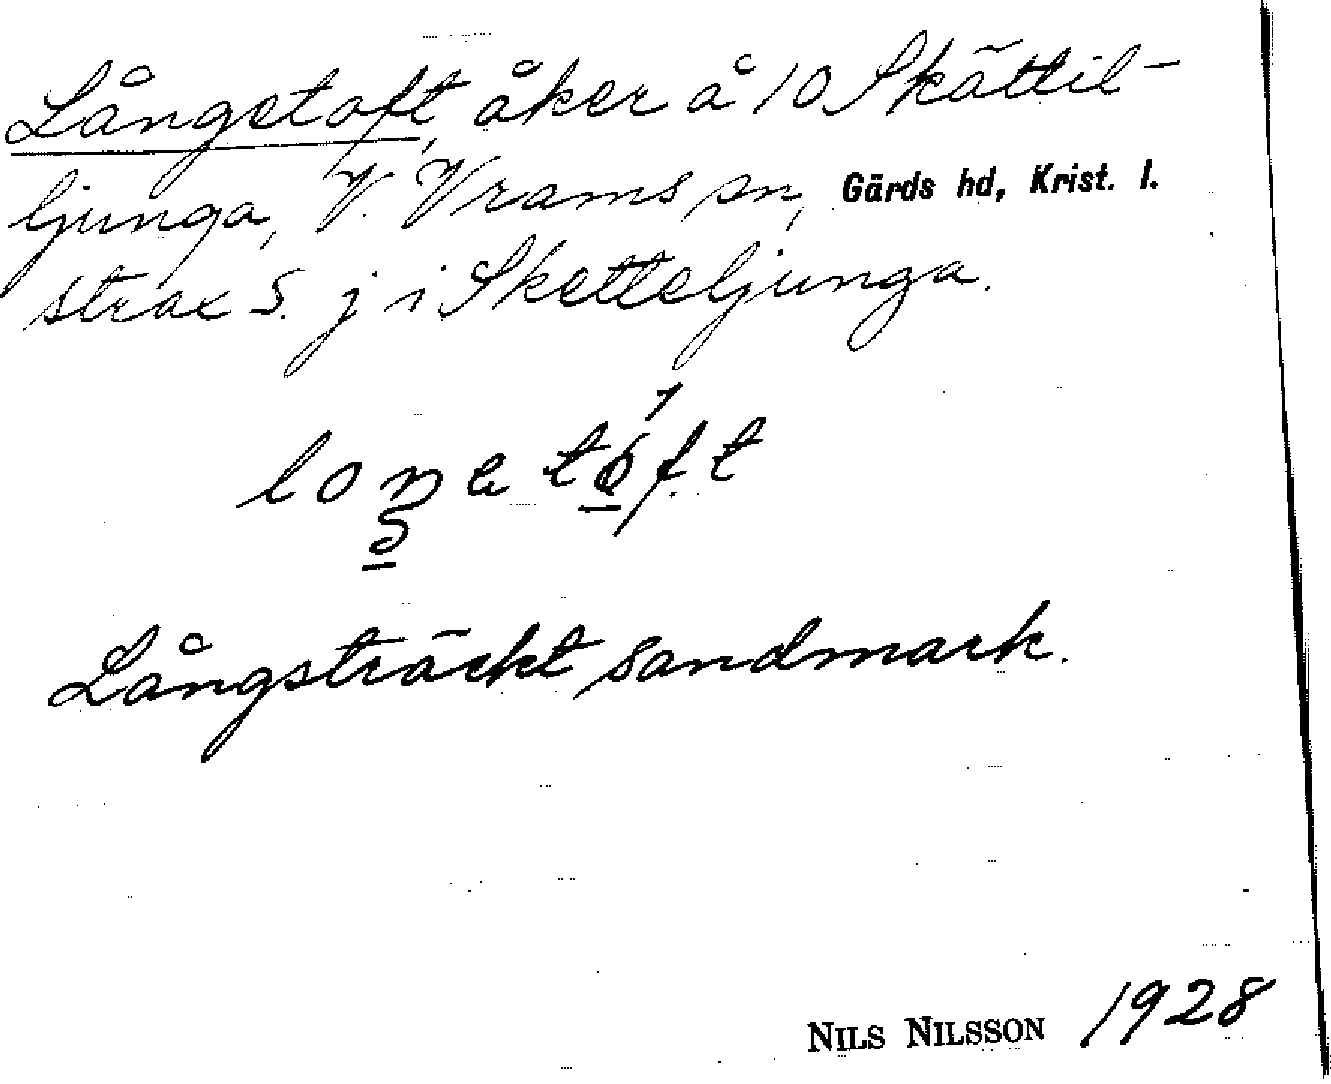 Långetoft, åker å 10 Skättil-
ljunga, V. Vrams sn, Gärds hd, Krist. l.
strax S. j i Sketteljunga.
Långsträckt sandmark.
NILS NILSSON 1928